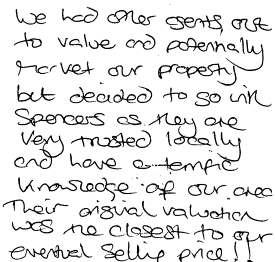 We had other agents out
to value and potentially
market our property
but decided to go with
Spencers as they are
very trusted locally
and have a terrific
knowledge of our area
Their original valuation
was the closest to our
eventual selling price!!